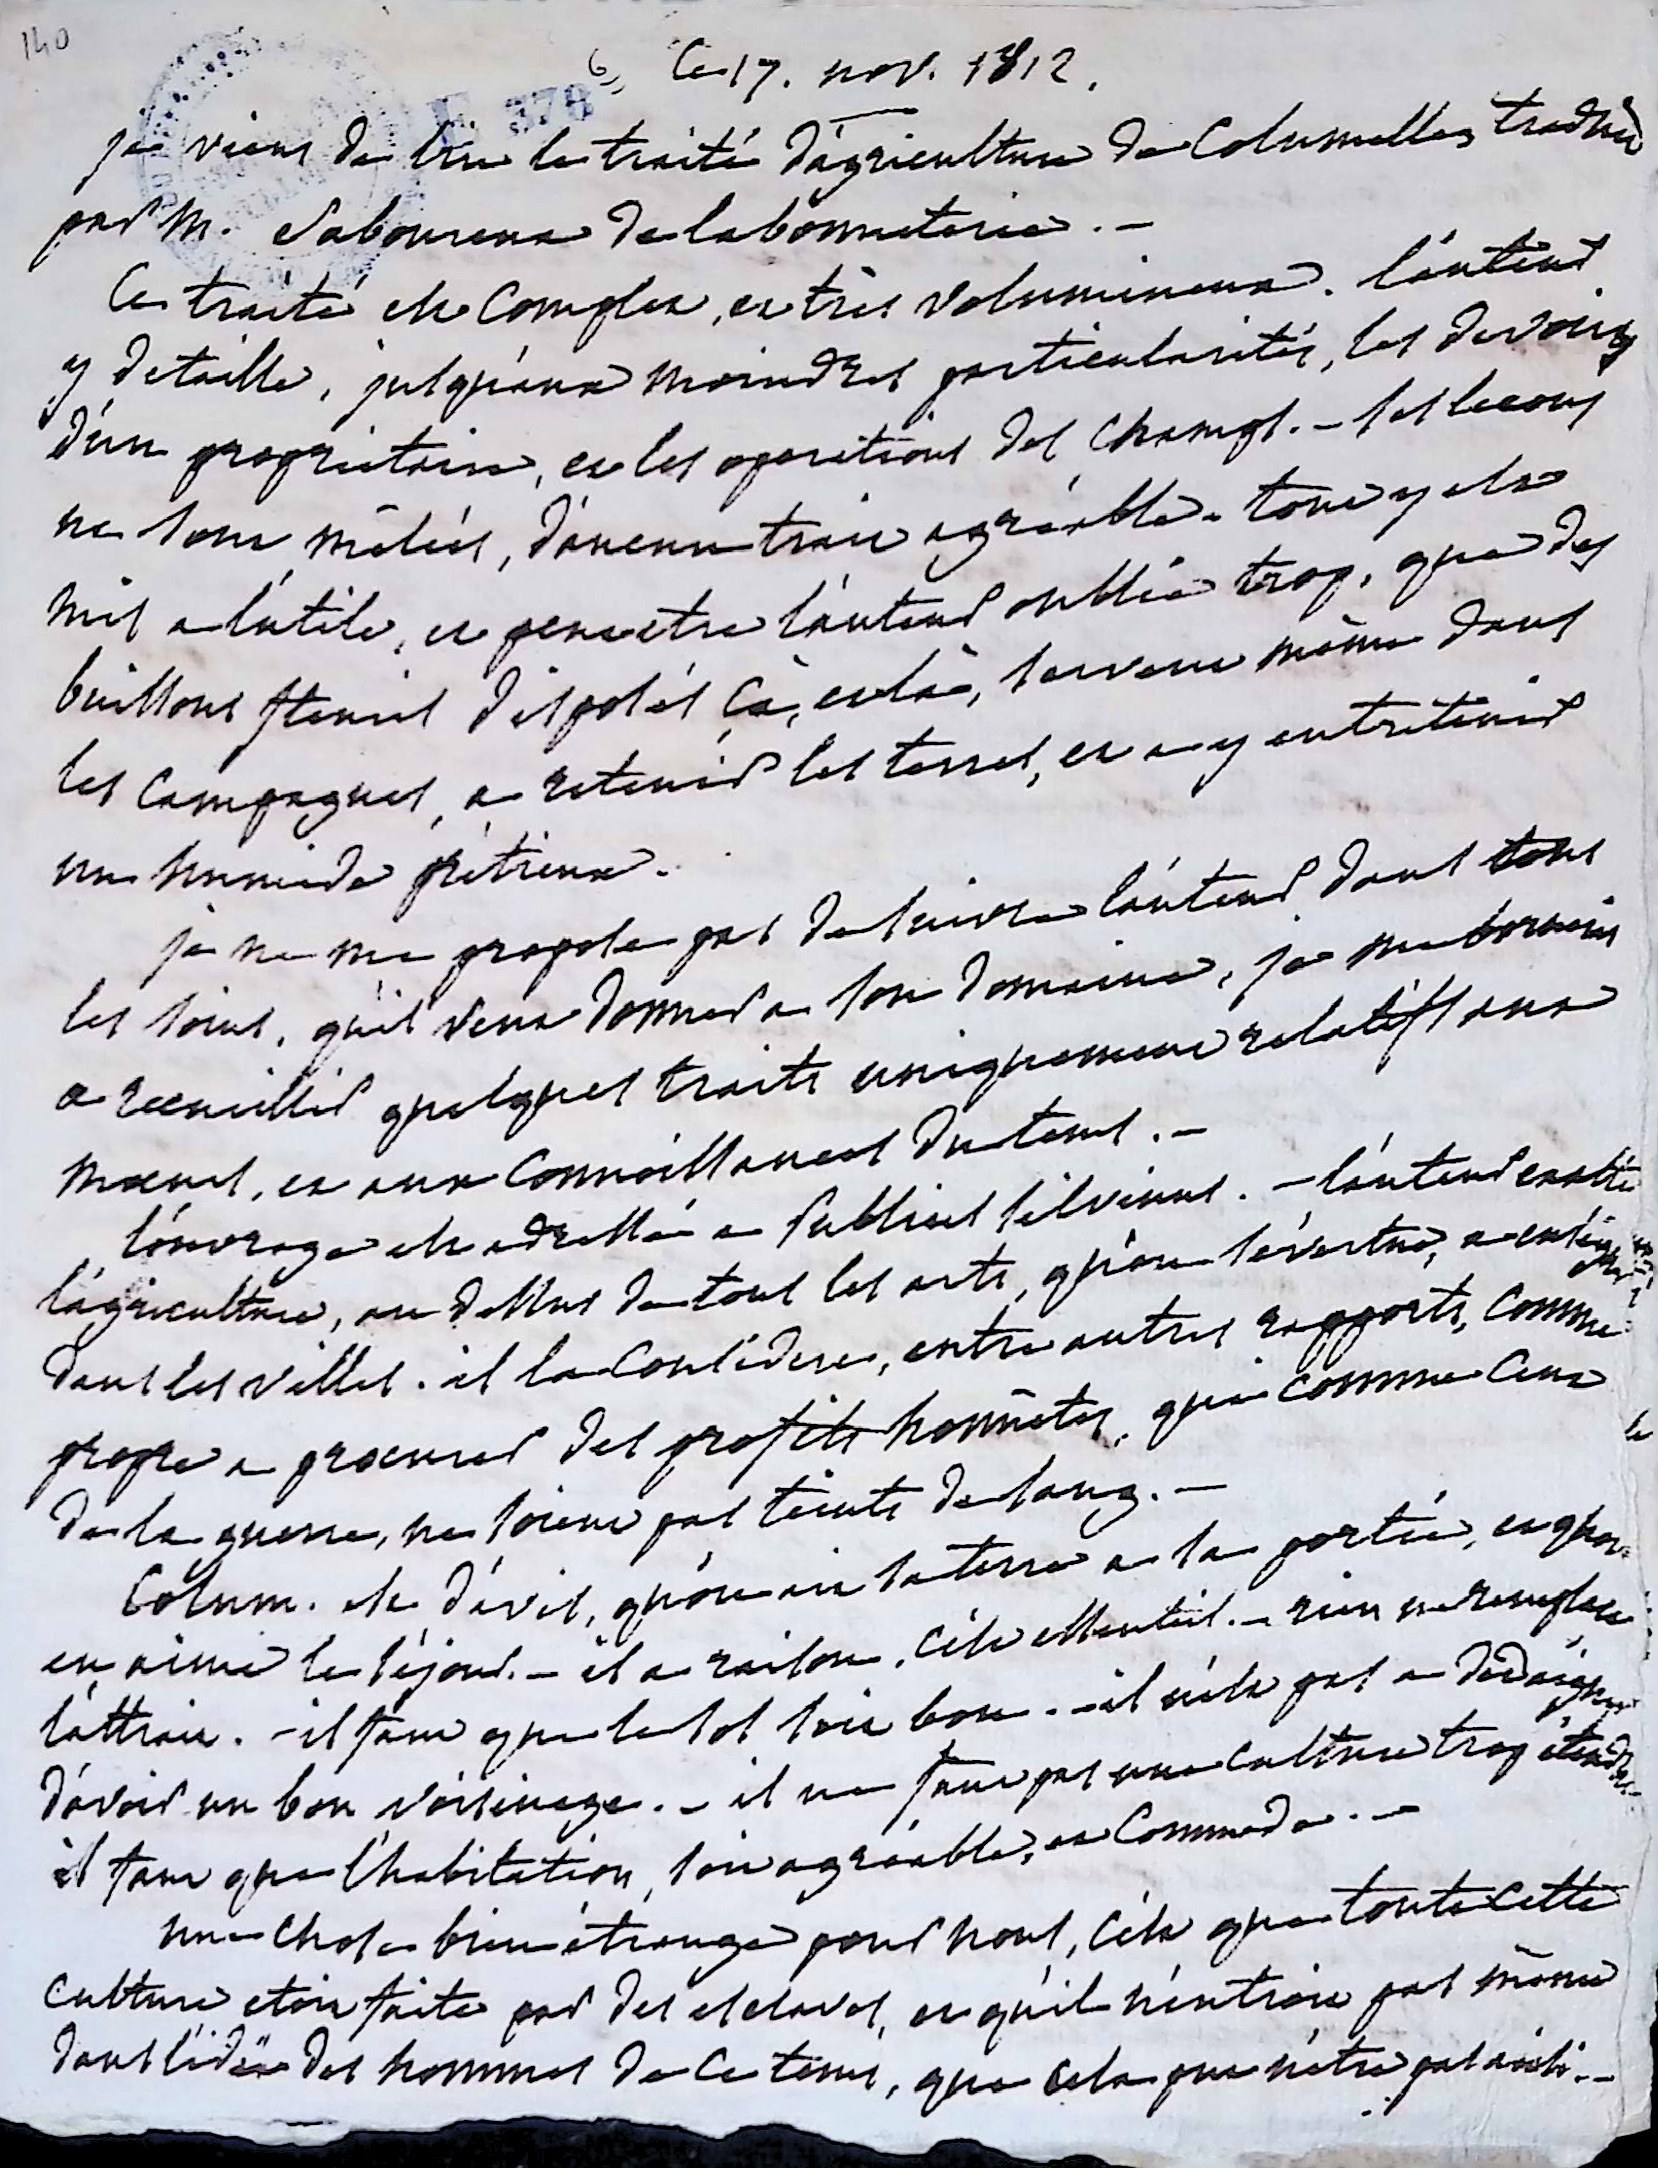 140
6, Ce 17. nov. 1812.
E 378
je viens de lire le traité d'agriculture de Columelle, traduit
par M. Saboureux de labonneterie. —
Ce traité est complet, et très volumineux. l'auteur
y detaille, jusqu'aux moindres particularités, les devoirs
d'un proprietaire, et les operations des champs. — ses lecons
ne sont mêlées, d'aucun trait agréable. tout y est
mis a l'utile, et peut etre l'auteur oublie trop, que des
buissons fleuris disposés çà, et là, servent même dans
les campagnes, a retenir les terres, et a y entretenir
un humide prétieux.
je ne me propose pas de suivre l'auteur dans tous
les soins, qu'il veut donner a son domaine, je me bornerai
a recueillir quelques traits uniquement relatifs aux
moeurs, et aux connoissances du tems. —
l'ouvrage est adressé a Publius silvinus. — l'auteur exalte
l'agriculture, au dessus de tous les arts, qu'on s'évertue, a enseigner
dans les villes. il la considere, entre autres rapports, comme
propre a procurer des profits honnêtes, qui comme ceux
de la guerre, ne soient pas teints de sang. —
Colum. est d'avis, qu'on ait sa terre a sa portée, et qu'on
en aime le séjour. — il a raison, c'est essentiel. — rien ne remplace
l'attrait. — il faut que le sol soit bon. — il n'est pas a dedaigner
d'avoir un bon voisinage. — il ne faut pas une culture trop étendue.
il faut que l'habitation, soit agréable, et commode. —
une chose bien étrange pour nous, c'est que toute cette
culture etoit faite par des esclaves, et qu'il n'entroit pas même
dans l'idée des hommes de ce tems, que cela put n'être pas ainsi. —